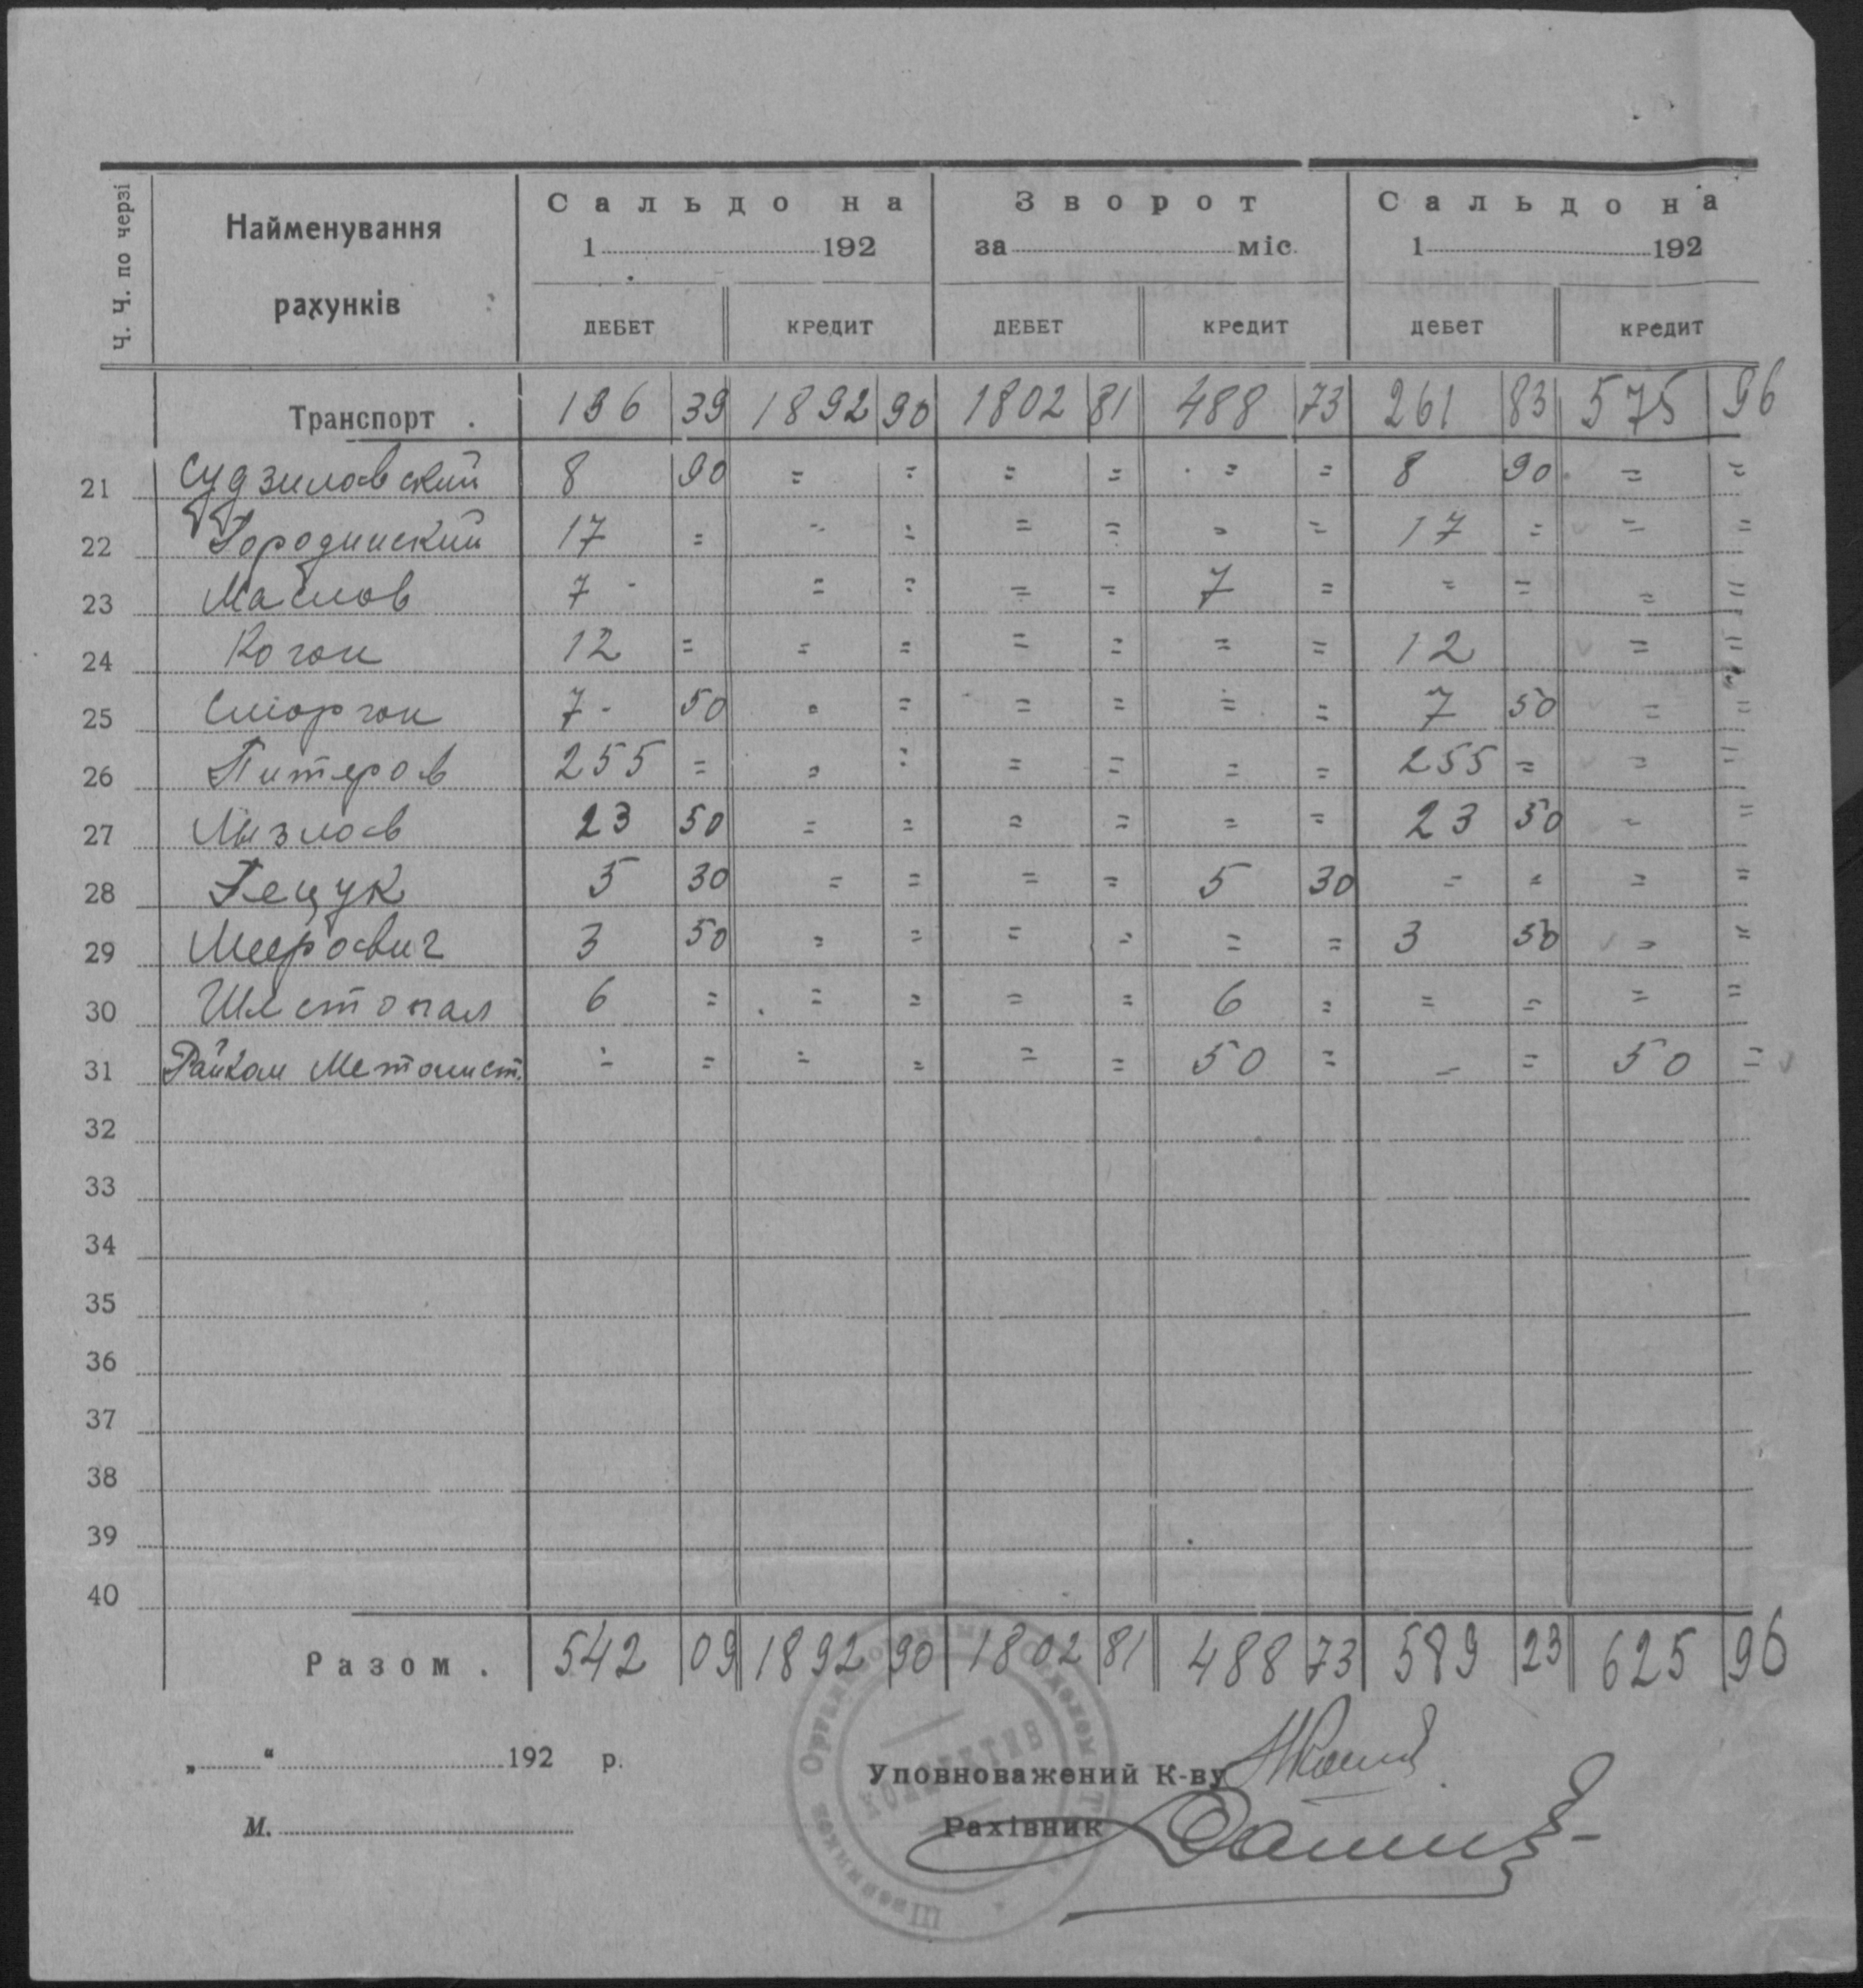 Ч. Ч. по черзі Найменування рахунків Сальдо на 1 192 Зворот за міс. Сальдо на 1 192
ДЕБЕТ КРЕДИТ ДЕБЕТ КРЕДИТ ДЕБЕТ КРЕДИТ
Транспорт . 196 39 1892 90 1802 81 488 73 261 83 575 96
21 Судзиловский 8 90 = = = = = = 8 90 = =
22 Городинский 17 = - = = = = = 17 = = =
23 Маслов 7 - = = = = 7 = = = = =
24 Коган 12 = = = = = = = 12 = =
25 Сморгон 7 - 50 = = = = = = 7 50 = =
26 Питеров 255 = = = = = = = 255 = = =
27 Мызлов 23 50 = = = = = = 23 50 = =
28 Гецук 5 30 = = = = 5 30 = = = =
29 Меерович 3 50 = = = = = = 3 50 = =
30 Шестопал 6 = = = = = 6 = = = = =
31 Райком Металист. = = = = = = 50 = = = 50 =
32
33
34
35
36
37
38
39
40
Разом . 542 09 1892 90 1802 81 488 73 589 23 625 96
„ “ 192 р.
Уповноважений К-ву
М.
Рахівник
КОЛЛЕКТИВ